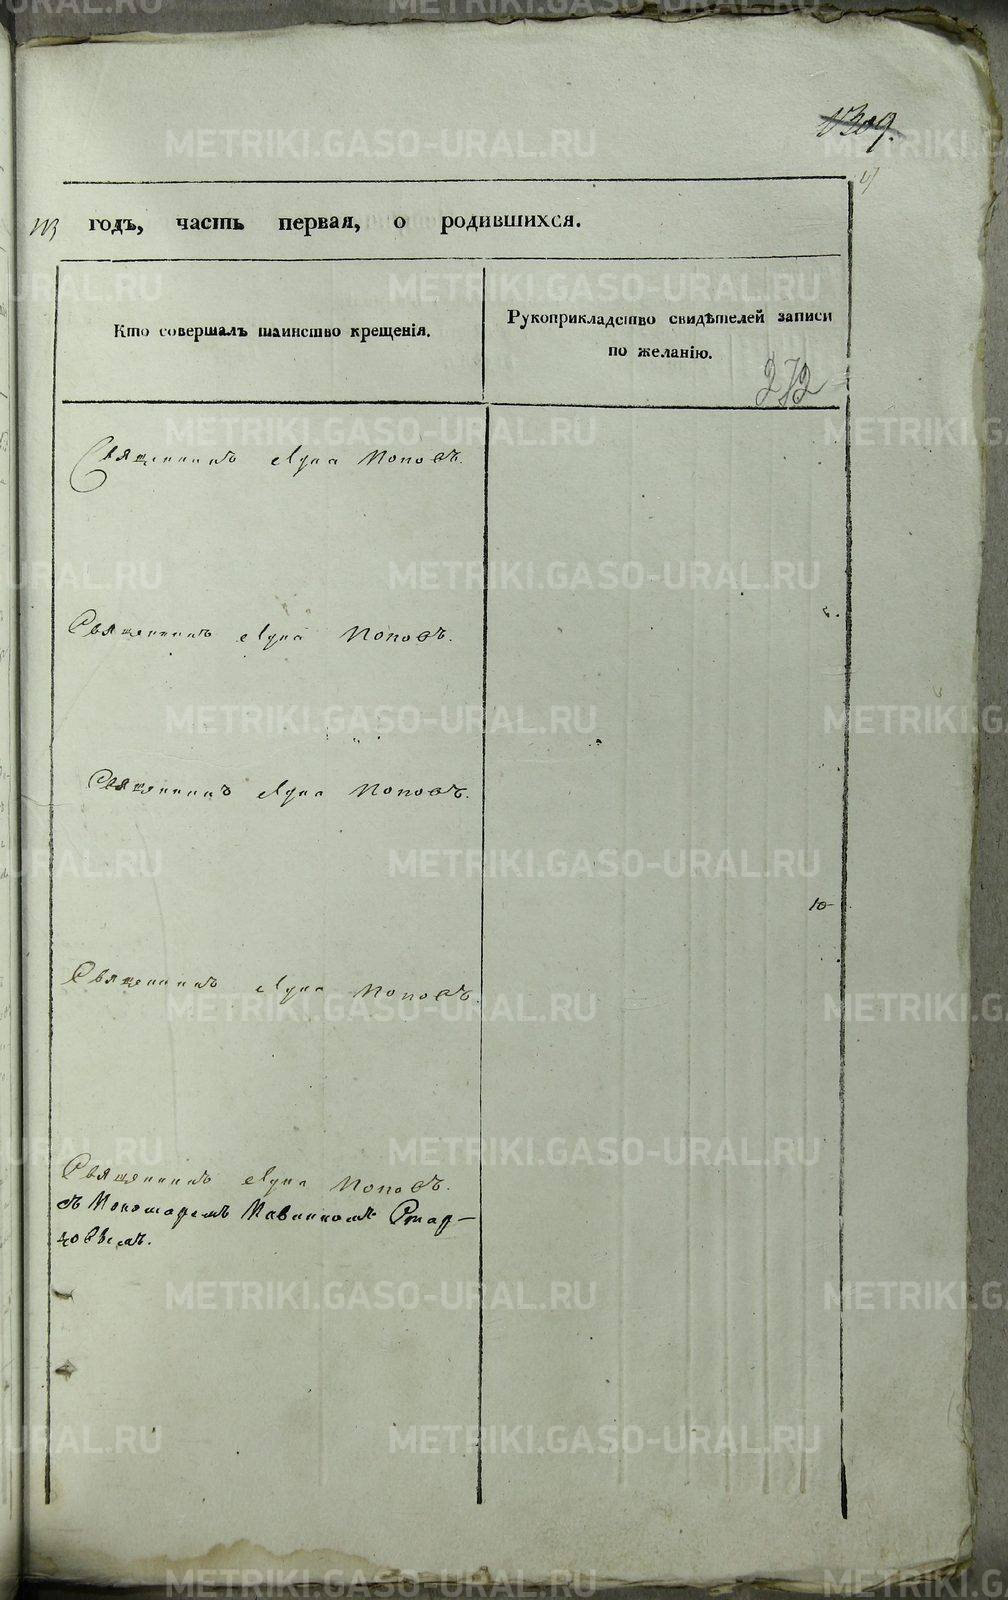 309.
годъ, часть первая, о родившихся.
Кто совершалъ таинство крещенія.
Рукоприкладство свидѣтелей записи
по желанію.
272
Священникъ Лука Поповъ.
Священникъ Лука Поповъ.
Священникъ Лука Поповъ.
10
Священникъ Лука Поповъ.
Священникъ Лука Поповъ.
съ Пономаремъ
METRIKI.GASO-URAL.RU